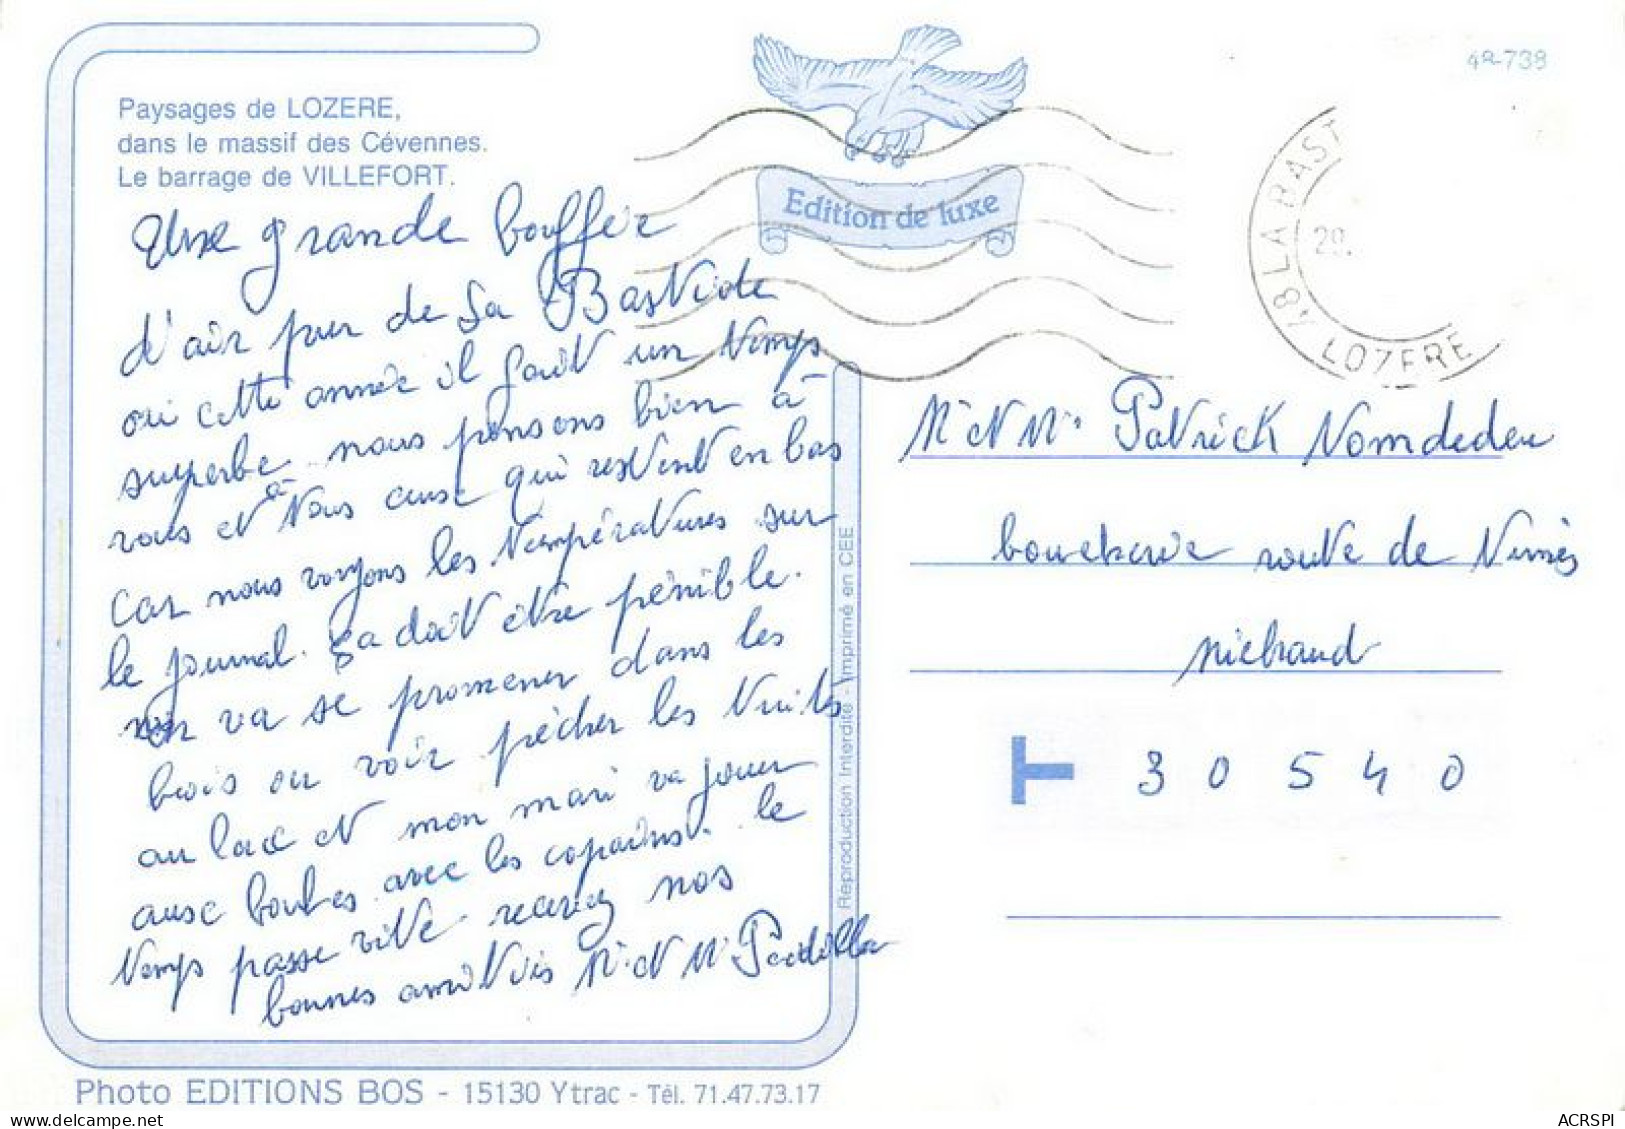 48-738
Paysages de LOZERE,
dans le massif des Cévennes.
Le barrage de VILLEFORT.
Edition de luxe
48 LA BAST
29.
LOZERE
Une grande bouffée
d'air pur de La Bastide
ou cette année il fait un temps
superbe nous pensons bien à
vous et à tous ceux qui restent en bas
car nous voyons les températures sur
le journal. ça doit être pénible.
on va se promener dans les
bois ou voir pêcher les truites
au lac et mon mari va jouer
aux boules avec les copains. le
temps passe vite recevez nos
bonnes amitiés Mr et Me Padilla
Mr et Me Patrick Nomdedeu
boucherie route de Nimes
Milhaud
T 30540
Reproduction Interdite - Imprimé en CEE
Photo EDITIONS BOS - 15130 Ytrac - Tél. 71.47.73.17
ACRSPI